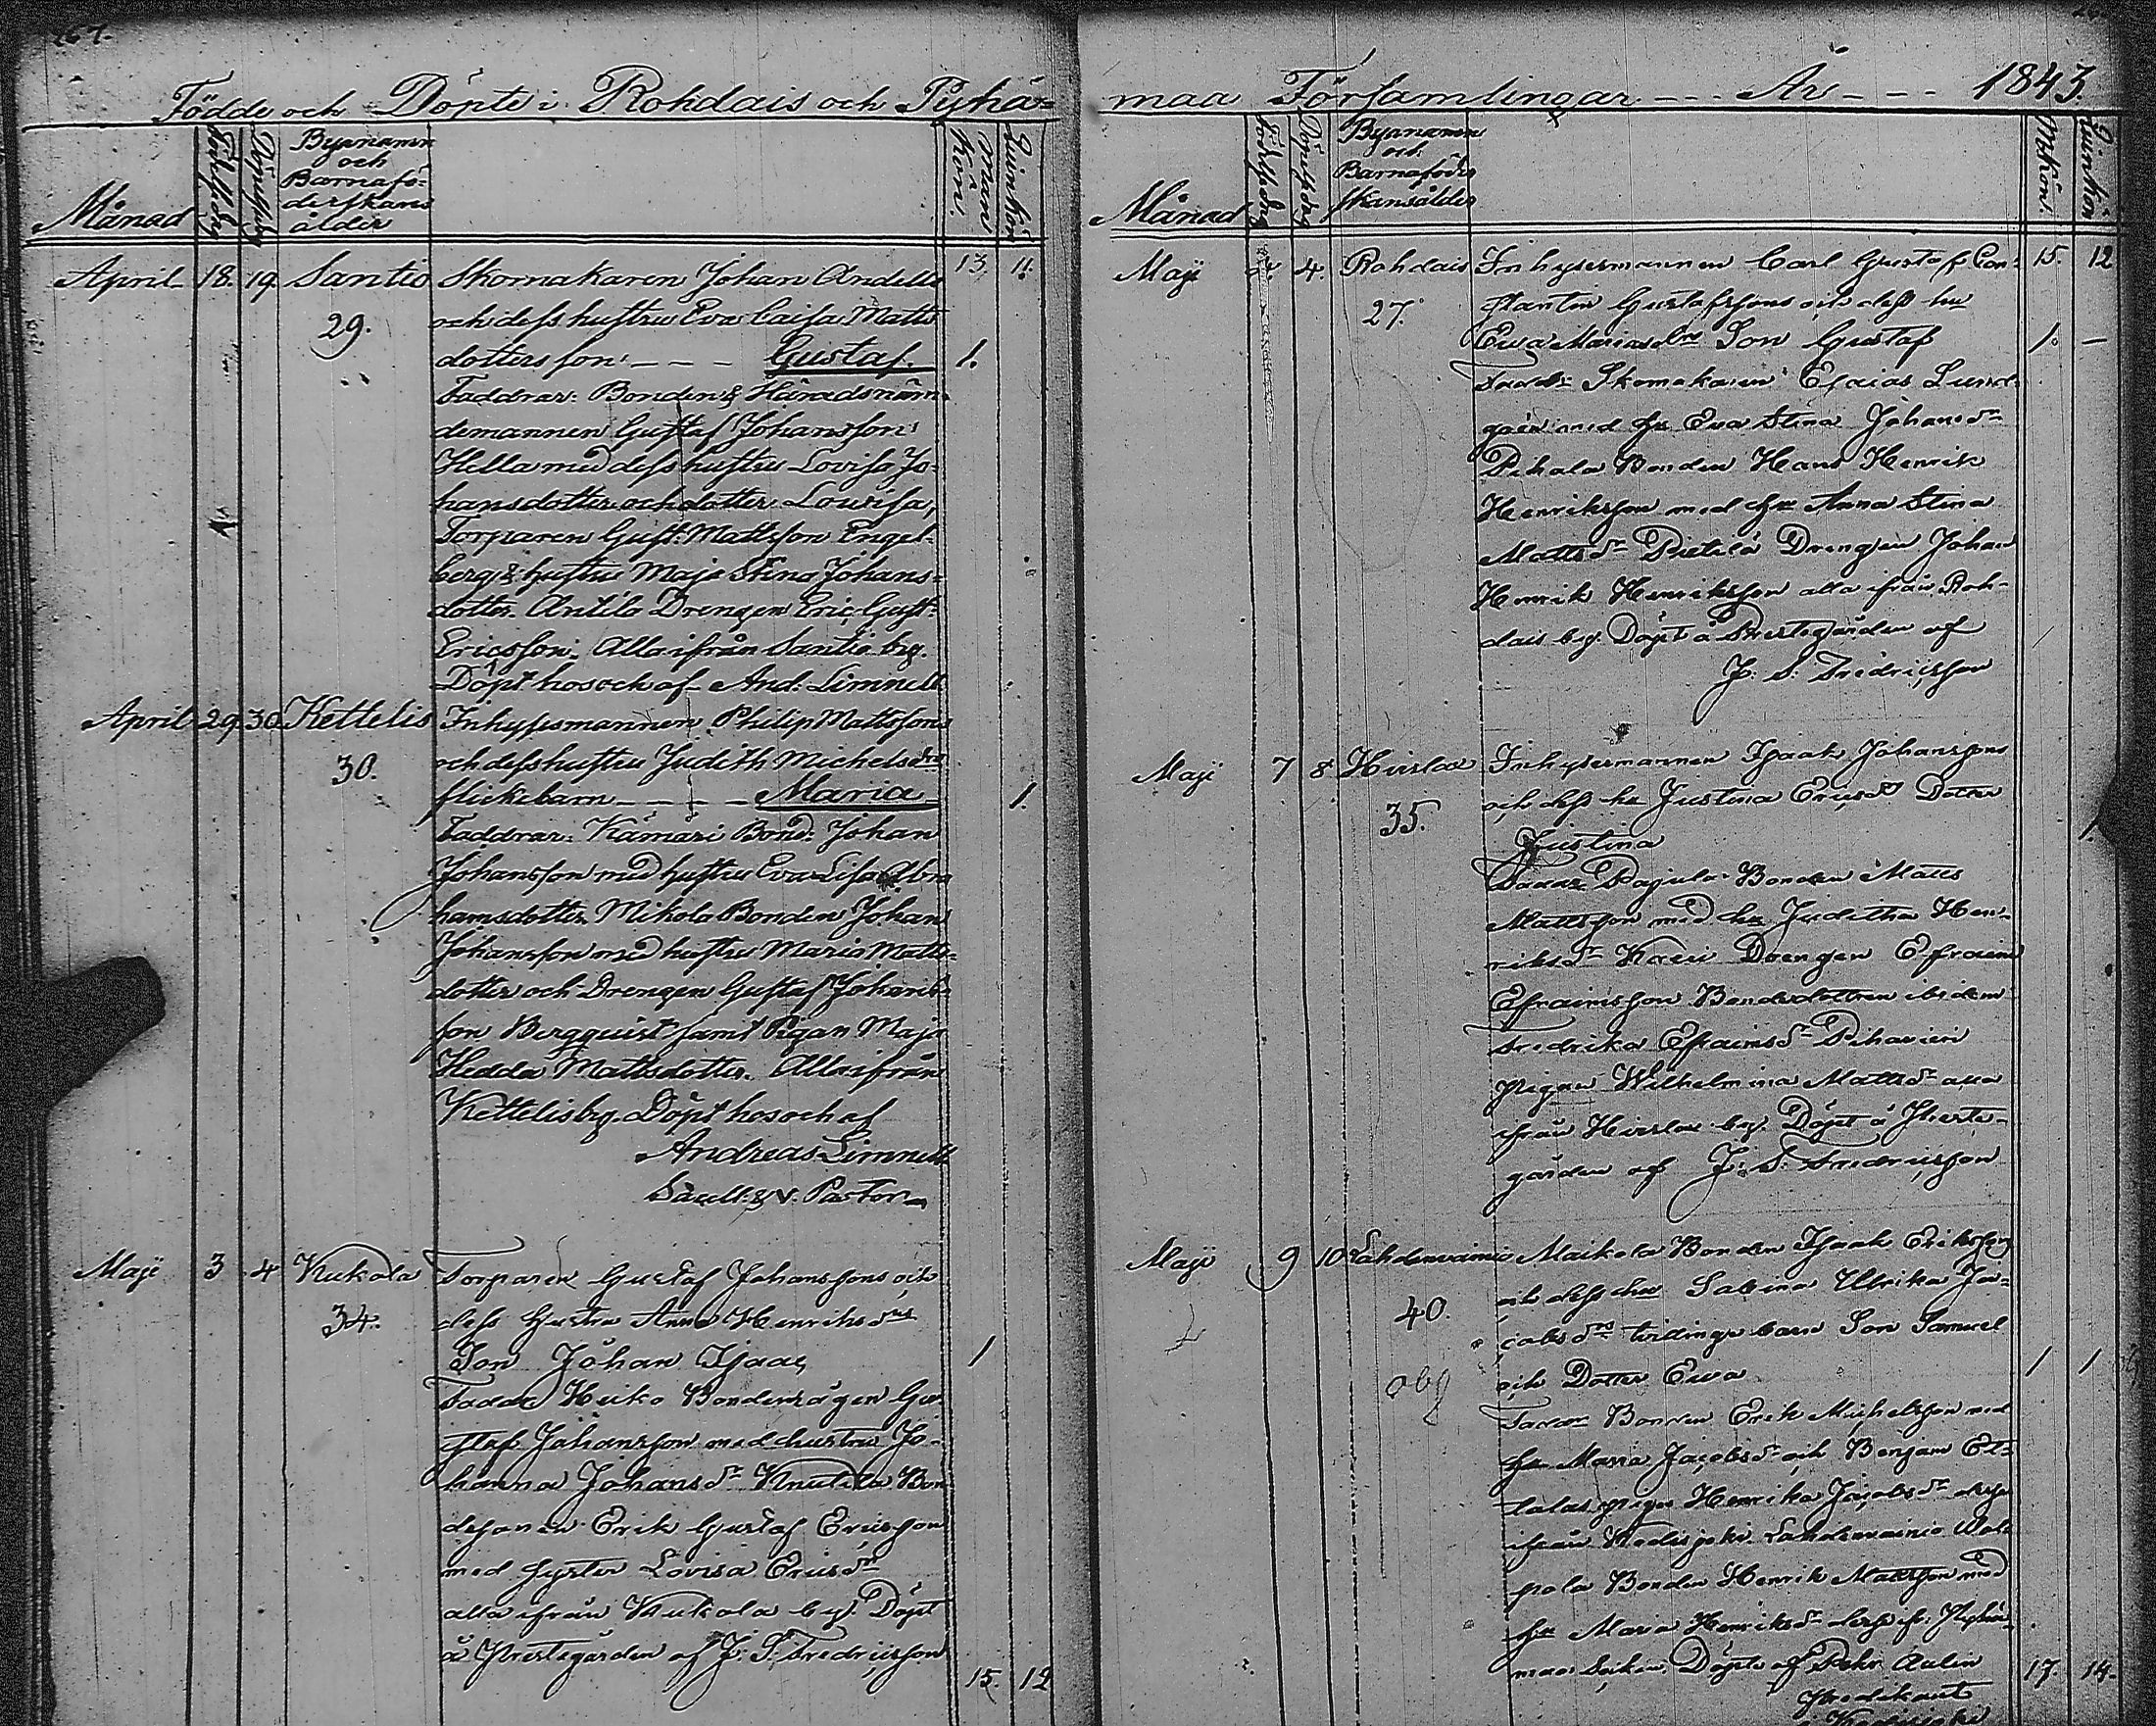 267.
Födde och Döpte i Rohdais och Pyhä=
Månad
Födelsedag
Döpelsedag
Byanamn
och
Barnafö=
derskans
ålder
Mån
Kön.
Quinkön
13. 11.
April 18. 19. Santio Skomakaren Johan Andells
29. och dess hustru Eva Caisa Matts
dotters son: - - - Gustaf. 1.
Faddrar: Bonden & Häradsnäm=
demannen Gustaf Johansson
Hella med dess hustru Lovisa Jo=
hansdotter och dotter Lovisa,
Torparen Gust: Mattsson Engel=
berg & hustru Maja Stina Johans=
dotter. Antila Drengen Eric Gust:
Ericsson. Alla ifrån Santio by.
Döpt hos och af And: Limnell
April 29. 30. Kettelis Inhysesmannen Philip Mattssons
30. och dess hustru Judith Michelsdrs
flickebarn - - - - Maria 1.
Faddrar: Kämäri Bond: Johan
Johansson med hustru Eva Lisa Abra
hamsdotter. Mikola Bonden Johan
Johansson med hustru Maria Matts=
dotter och Drengen Gustaf Johans=
son Bergquist samt Pigan Maja
Hedda Mattsdotter. Alla ifrån
Kettelis by. Döpt hos och af
Andreas Limnell
Sacell: & v. Pastor
Maji 3 4 Kukola Torparen Gustaf Johanssons och
34. dess hustru Anna Henriksdrs
Son Johan Isaac 1
Faddr Heiko Bonden Gu
staf Johansson med hustru Jo=
hanna Johansdr Knutila Bon
desonen Erik Gustaf Ericsson
med syster Lovisa Ericsdr
alla ifrån Kukola by. Döpt
å Prestegården af J: S: Fredricsson
15. 12
maa Församlingar - - - År - - - 1843.
Månad
Födelsedag
Döpelsedag
Byanamn
och
Barnaföder
skans ålder
M:kön.
Quinkön
15. 12
Maji 4. Rohdais Inhysesmannen Carl Gustaf Con=
27. stantin Gustafssons och dess hu
Ewa Mariasdrs Son Gustaf 1. -
Faddr Skomakaren Esaias Lund=
med hu Eva Stina Johansdr
Pihala Bonden Hans Henrik
Henriksson med hu Anna Stina
Mattsdr Pietilä Drengen Johan
Henrik Henriksson alla ifrån Roh=
dais by. Döpt å Prestegården af
J: S: Fredricsson
Maji 7 8 Hirslax Inhysesmannen Isaak Johanssons
35. och dess hu Justina Ericsdrs Dotter
Justina 1.
Faddr Bonden Matts
Mattsson med hu Juditha Hen=
riksdr Drengen Efraim
Efraimsson Bondedottren ibidem
Fredrika Efraimsdr
Pigan Wilhelmina Mattsdr alla
ifrån Hirslax by. Döpt å Preste=
gården af J: S: Fredricsson
Maji 9 10 Lahdenvainio Maikola Bonden Isaak Erikssons
40. och dess hu Sabina Ulrika Ja=
cobsdrs tvillinge barn Son Samuel
och Dotter Ewa 1 1
obs
Faddr Bonden Erik Michelsson med
hu Maria Jacobsdr och Benjam Et=
talas piga Henrika Jacobsdr dessa
ifrån Kodisjoki. Lahdenvainio Wal=
pola Bonden Henrik Mattsson med
hu Maria Henriksdr dessa ifr: Pyhä=
maa Socken. Döpte af Pehr Aulin
Predikant
17. 14.